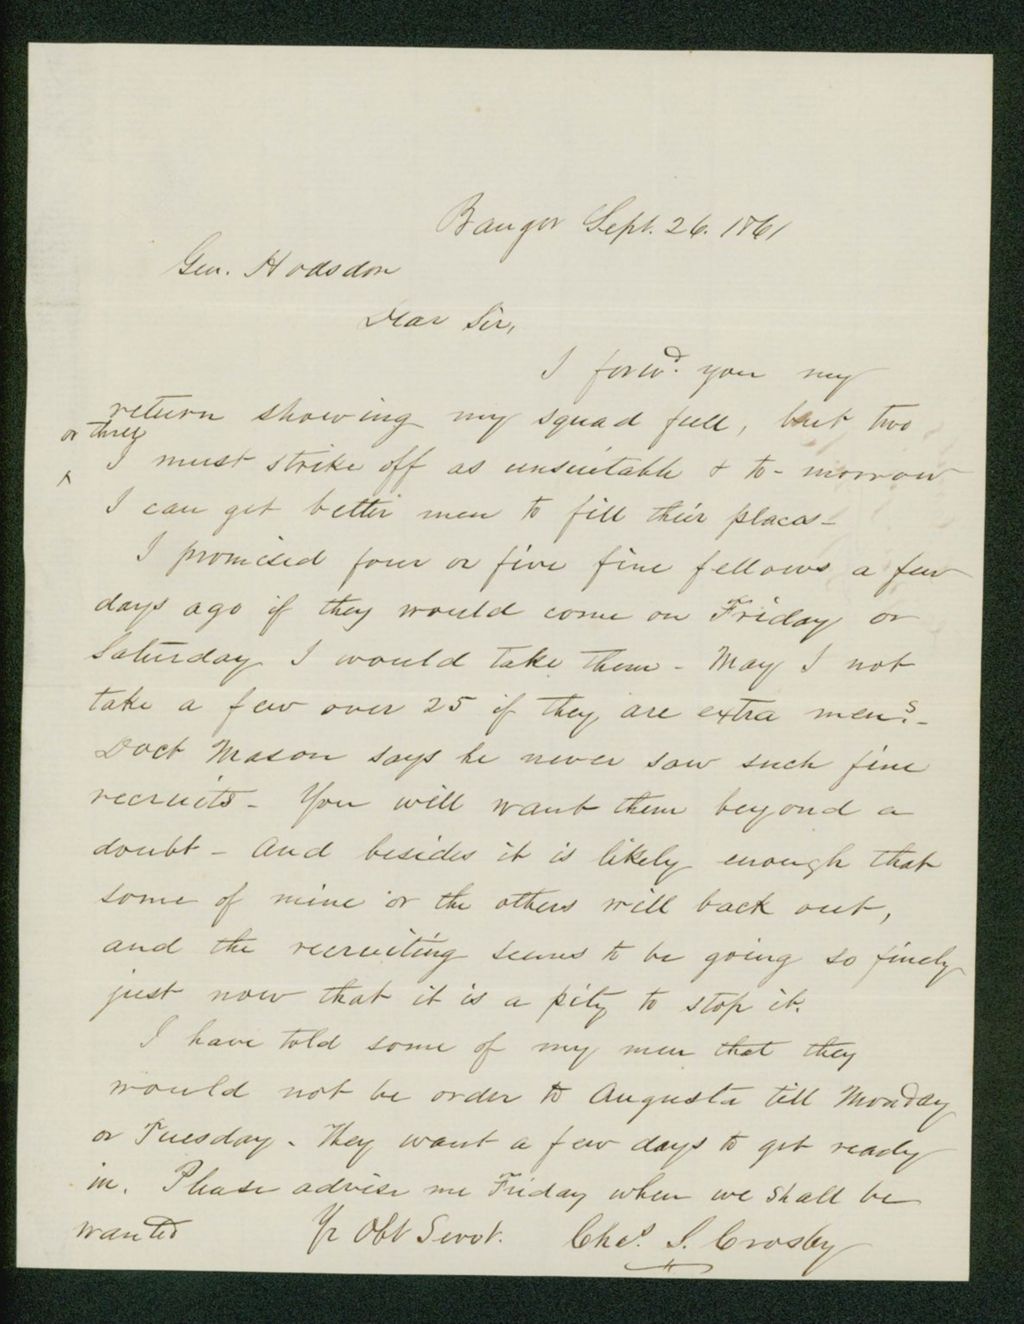 Bangor Sept. 26. 1861
Gen. Hodsdon
Dear Sir,
I forwd. you my
return showing my squad full, but two
or three
^ I must strike off as unsuitable & to-morrow
I can get better men to fill their places-
I promised four or five fine fellows a few
days ago if they would come on Friday or
Saturday I would take them - May I not
take a few over 25 if they are extra men?-
Doct Mason says he never saw such fine
recruits - You will want them beyond a
doubt - And besides it is likely enough that
some of mine or the others will back out,
and the recruiting seems to be going so finely
just now that it is a pity to stop it.
I have told some of my men that they
would not be order to Augusta till Monday
or Tuesday - They want a few days to get ready
in. Please advise me Friday when we shall be
wanted Yr Obt Servt. Chas. S. Crosby